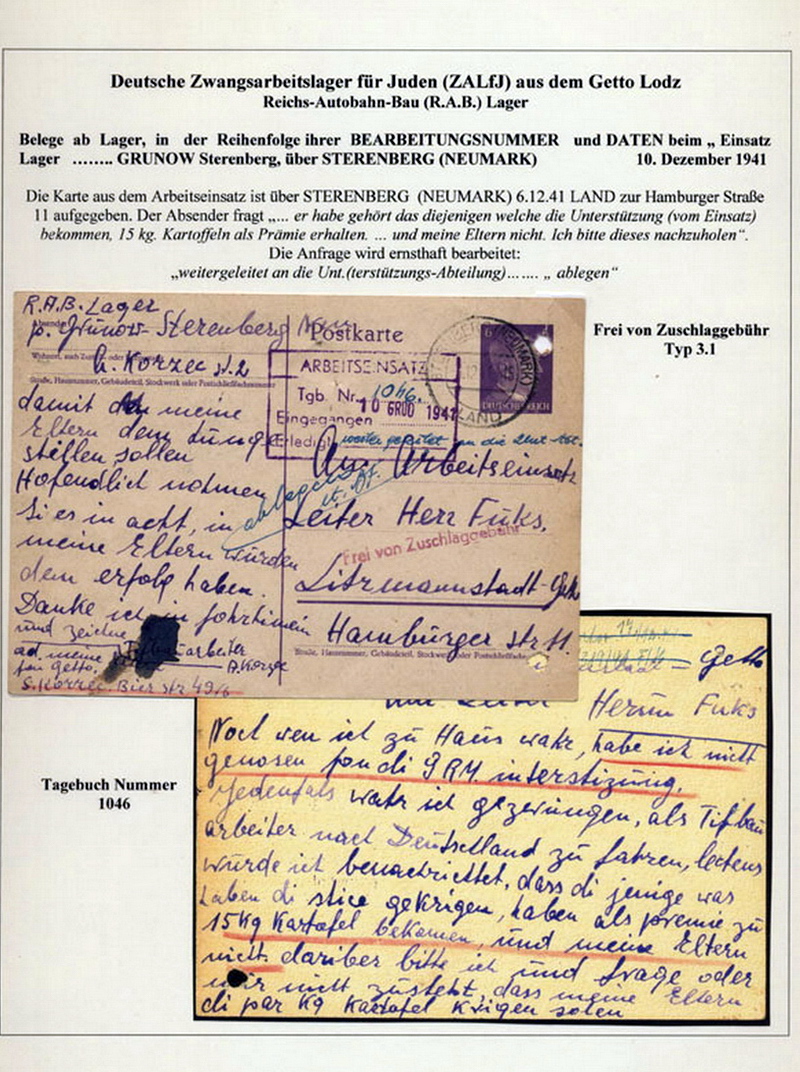 Deutsche Zwangsarbeitslager für Juden (ZALfJ) aus dem Getto Lodz
Reichs-Autobahn-Bau (R.A.B.) Lager
Belege ab Lager, in der Reihenfolge ihrer BEARBEITUNGSNUMMER und DATEN beim „ Einsatz
Lager …….. GRUNOW Sterenberg, über STERENBERG (NEUMARK) 10. Dezember 1941
Die Karte aus dem Arbeitseinsatz ist über STERENBERG (NEUMARK) 6.12.41 LAND zur Hamburger Straße
11 aufgegeben. Der Absender fragt „... er habe gehört das diejenigen welche die Unterstützung (vom Einsatz)
bekommen, 15 kg. Kartoffeln als Prämie erhalten. ... und meine Eltern nicht. Ich bitte dieses nachzuholen“.
Die Anfrage wird ernsthaft bearbeitet:
„weitergeleitet an die Unt.(terstützungs-Abteilung)…… „ ablegen“
Frei von Zuschlaggebühr
Typ 3.1
R.A.B. Lager
p. Grünow- Sterenberg
A. Korzec
Postkarte
Straße, Hausnummer, Gebäudeteil, Stockwerk oder Postschließfachnummer
DEUTSCHES REICH
LAND
ARBEITSEINSATZ
Tgb. Nr. 1046.
Eingegangen 10 GRUD 1941
Erledigt weiter geleitet an die Unt. Abt.
ablegen
damit meine
Eltern dem
stellen sollen
Hofendlich nehmen
Si es in acht, in
meine Eltern würden
dem erfolg haben.
Danke ich in
und zeichne
arbeiter
A. Korzec
S. Korzec. Bier str 49/6
An Arbeitseinsatz
Leiter Herr Fuks.
Frei von Zuschlaggebühr
Litzmannstadt-
Hamburger str 11.
Straße, Hausnummer, Gebäudeteil, Stockwerk oder Postschließfach
Getto
Herrn Fuks
Noch wen ich zu Haus wahr, habe ich nicht
genosen fon di interstizung.
Jedenfals wahr ich gezwungen, als Tifbau
arbeiter nach Deutschland zu fahren, lectens
wurde ich benachrichtet, dass di jenige was
haben di stice gekrigen, haben als premie zu
15 Kg Kartofel bekomen, und meine Eltern
nicht. dariber bitte ich und frage oder
mir nicht zusteht, dass meine Eltern
di par Kg Kartofel krigen solen
Tagebuch Nummer
1046